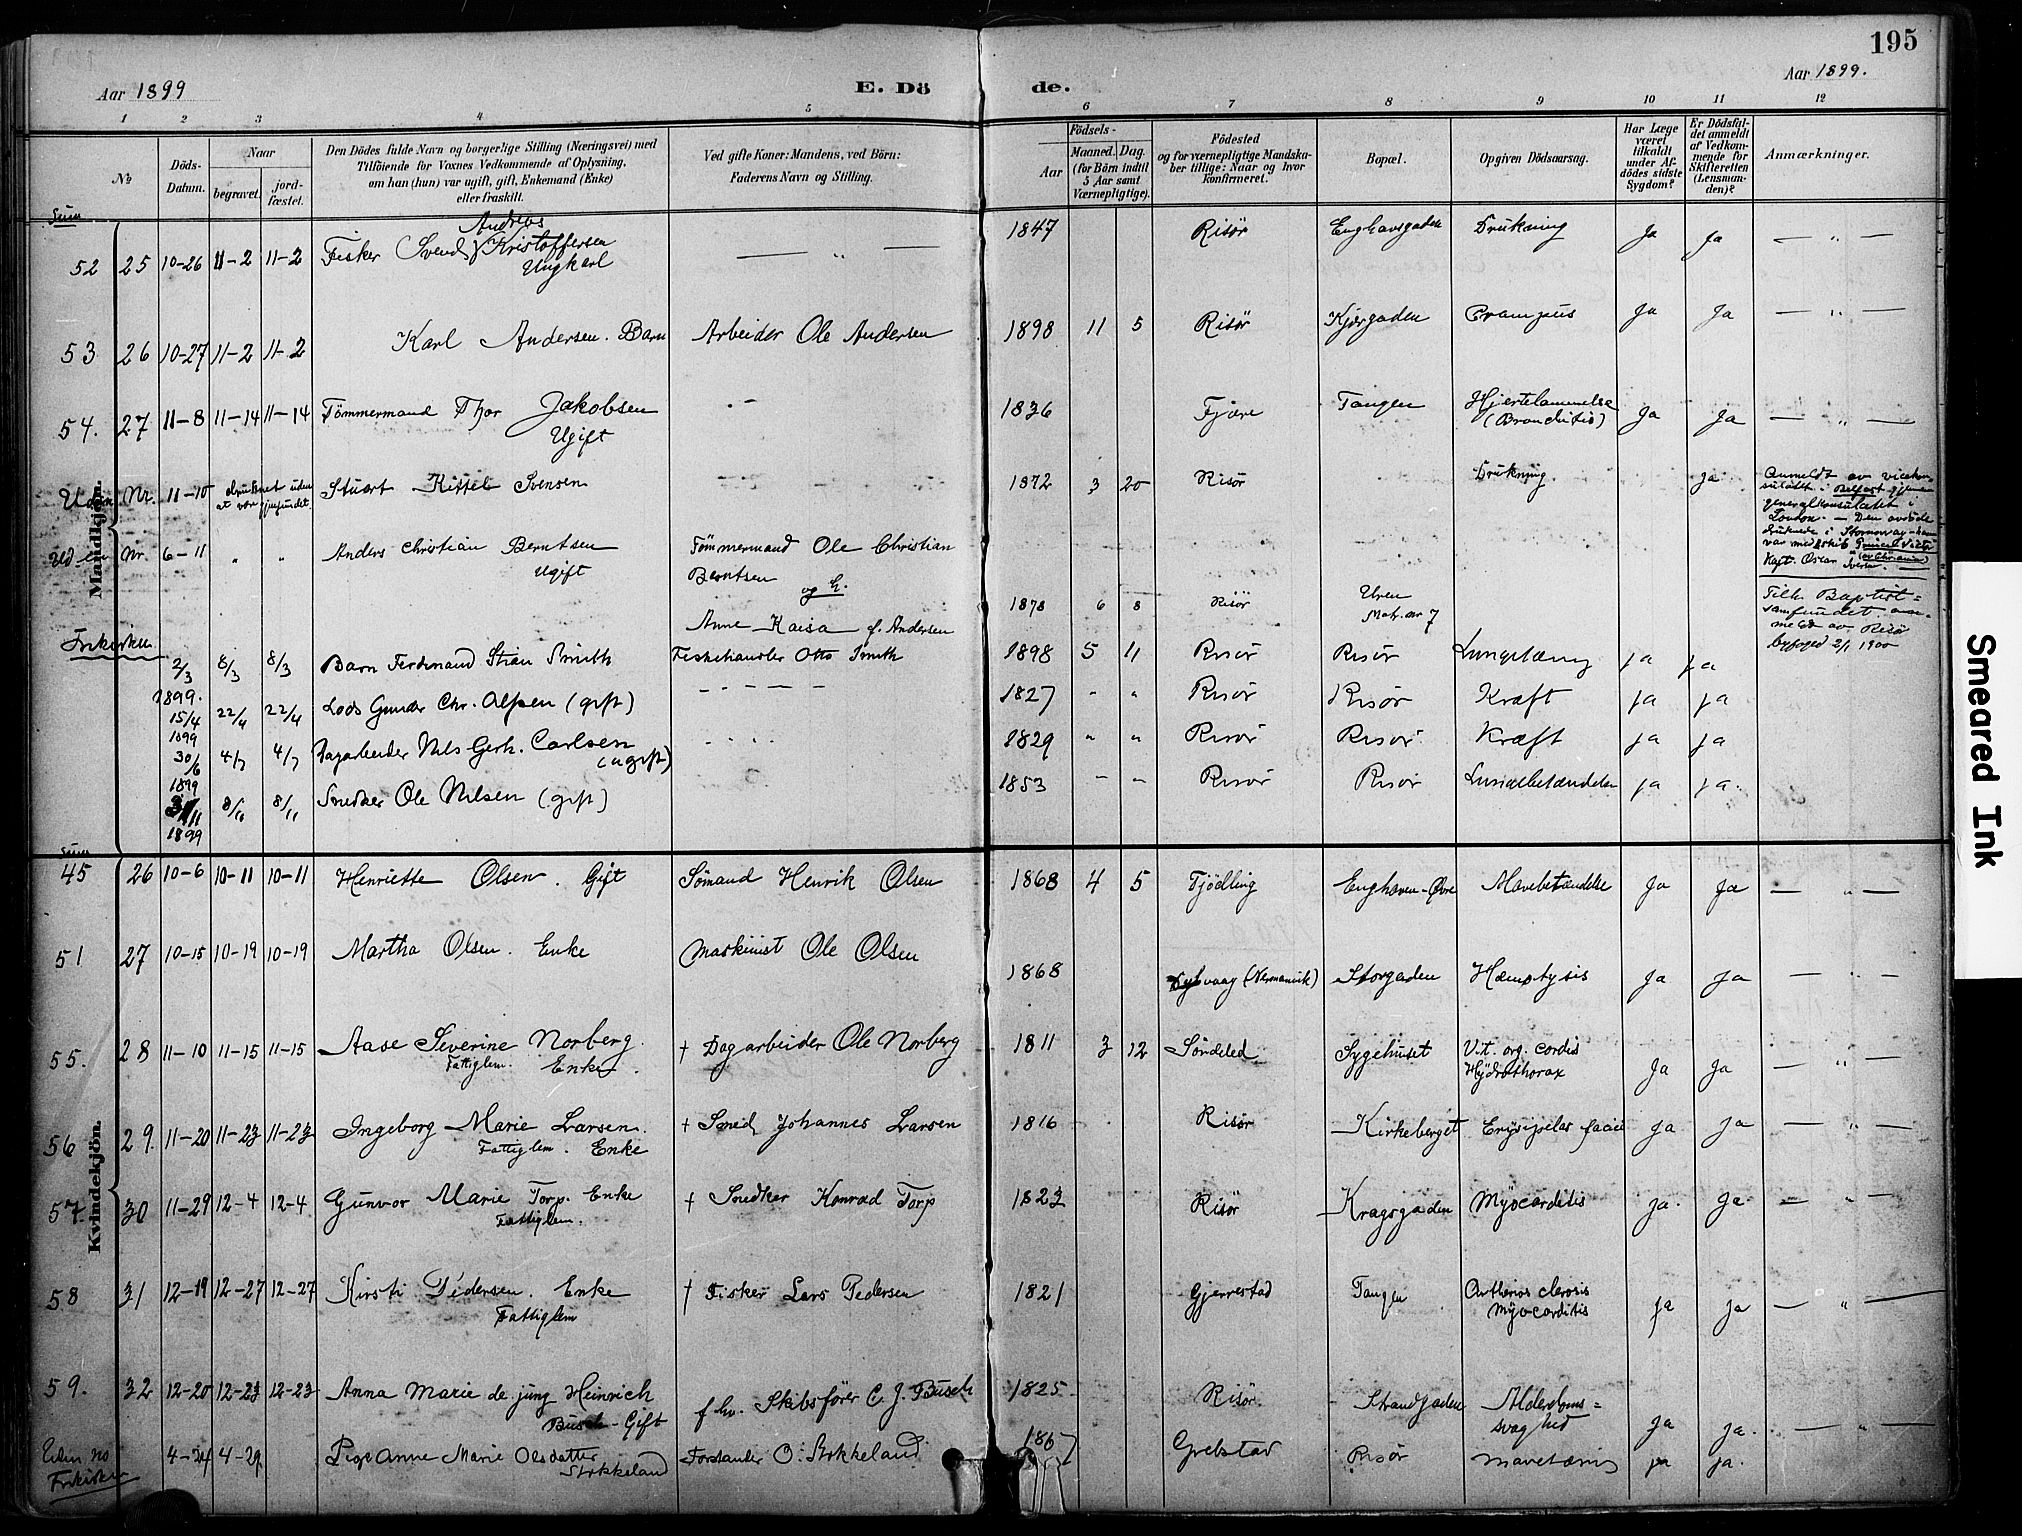 195
Aar 1899
E. Dö
de.
Aar 1899.
1 2 3 4 5 6 7 8 9 10 11 12
№
Döds-
Datum.
Naar
begravet.
jord-
fæstet.
Den Dödes fulde Navn og borgerlige Stilling (Næringsvei) med
Tilföiende for Voxnes Vedkommende af Oplysning,
om han (hun) var ugift, gift, Enkemand (Enke)
eller fraskilt.
Ved gifte Koner: Mandens, ved Börn:
Faderens Navn og Stilling.
Födsels-
Aar
Maaned. Dag.
(for Börn indtil
5 Aar samt
Værnepligtige).
Födested
og for værnepligtige Mandska-
ber tillige: Naar og hvor
konfirmeret.
Bopæl.
Opgiven Dödsaarsag.
Har Læge
været
tilkaldt
under Af-
dödes sidste
Sygdom?
Er Dödsfal-
det anmeldt
af Vedkom-
mende for
Skifteretten
(Lensman-
den)?
Anmærkninger.
Mandkjön.
Sum
52 25 10-26 11-2 11-2 Fisker Svend Andreas Kristoffersen
Ungkarl — „ — 1847 Risör Enghavsgaden Drukning Ja Ja — „ —
53 26 10-27 11-2 11-2 Karl Andersen. Barn Arbeider Ole Andersen 1898 11 5 Risör Kjergaden Crampus Ja Ja — „ —
54. 27 11-8 11-14 11-14 Tömmermand Thor Jakobsen
Ugift 1836 Fjære Tangen Hjertelammelse
(Bronchitis) Ja Ja — „ —
Uden Nr. 11-10 druknet uden
at være gjenfundet. Stuart Kittel Svensen 1872 3 20 Risör Drukning Ja
Anmeldt av vicekon-
sulatet i Belfast gjennem
generalkonsulatet i
London. — Den avdöde
druknede i Stornoway, han
var med skib
Kapt. Oscar Iversen.
Uden Nr. 6-11 „ „ Anders Christian Berntsen
Ugift Tömmermand Ole Christian
Berntsen
og h.
Anne Kaisa f. Andersen 1878 6 8 Risör Uren
Matr. nr 7
Tilh. Baptist-
samfundet an-
meldt av Risör
byfoged 2/1 1900
Frikirken
2/3 1899. 8/3 8/3 Barn Ferdinand Stian Smith Fiskehandler Otto Smith 1898 5 11 Risör Risör Lungetæring ja ja
15/4 1899 22/4 22/4 Lods Gunder Chr. Olsen (gift) 1827 „ „ Risör Risör Kræft ja ja
30/6 1899 4/7 4/7 Dagarbeider Nils Gerh. Carlsen
(ugift) 1829 „ „ Risör Risör Kræft ja ja
3/11 1899 8/11 8/11 Snedker Ole Nilsen (gift) 1853 „ „ Risör Risör Lungebetændelse ja ja.
Kvindekjön.
Sum
45 26 10-6 10-11 10-11 Henriette Olsen. Gift Sömand Henrik Olsen 1868 4 5 Tjödling Enghaven-Övre Mavebetændelse Ja Ja — „ —
51 27 10-15 10-19 10-19 Martha Olsen. Enke Maskinist Ole Olsen 1868 Dybvaag Storgaden Hæmoptysis Ja Ja — „ —
55. 28 11-10 11-15 11-15 Aase Severine Norberg.
Fattiglem. Enke. † Dagarbeider Ole Norberg 1811 3 12 Söndeled Sygehuset Vit. org. cordis
Hydrothorax Ja Ja — „ —
56 29. 11-20 11-23 11-23 Ingeborg Marie Larsen.
Fattiglem. Enke † Smed Johannes Larsen 1816 Risör Kirkeberget Erysipelas faciei Ja Ja — „ —
57. 30 11-29 12-4 12-4 Gunvor Marie Torp. Enke
Fattiglem. † Snedker Konrad Torp 1823 Risör Kragsgaden Myocarditis Ja. Ja — „ —
58 31 12-19 12-27 12-27 Kirsti Pedersen. Enke
Fattiglem † Fisker Lars Pedersen 1821 Gjerrestad Tangen Artherios clerosis
Myocarditis Ja Ja — „ —
59. 32 12-20 12-23 12-23 Anna Marie de jung Heinrich
Busch - Gift f. hv. Skibsförer C. J. Busch 1825 Risör. Strandgaden Alderdoms=
svaghed Ja Ja. — „ —
Uden no
Frikirken 4-24 4-29 Pige Anne Marie Olsdatter
Stokkeland Forstander O. Stokkeland 1867 Grebstad Risör mavetæring ja ja.
Smeared Ink